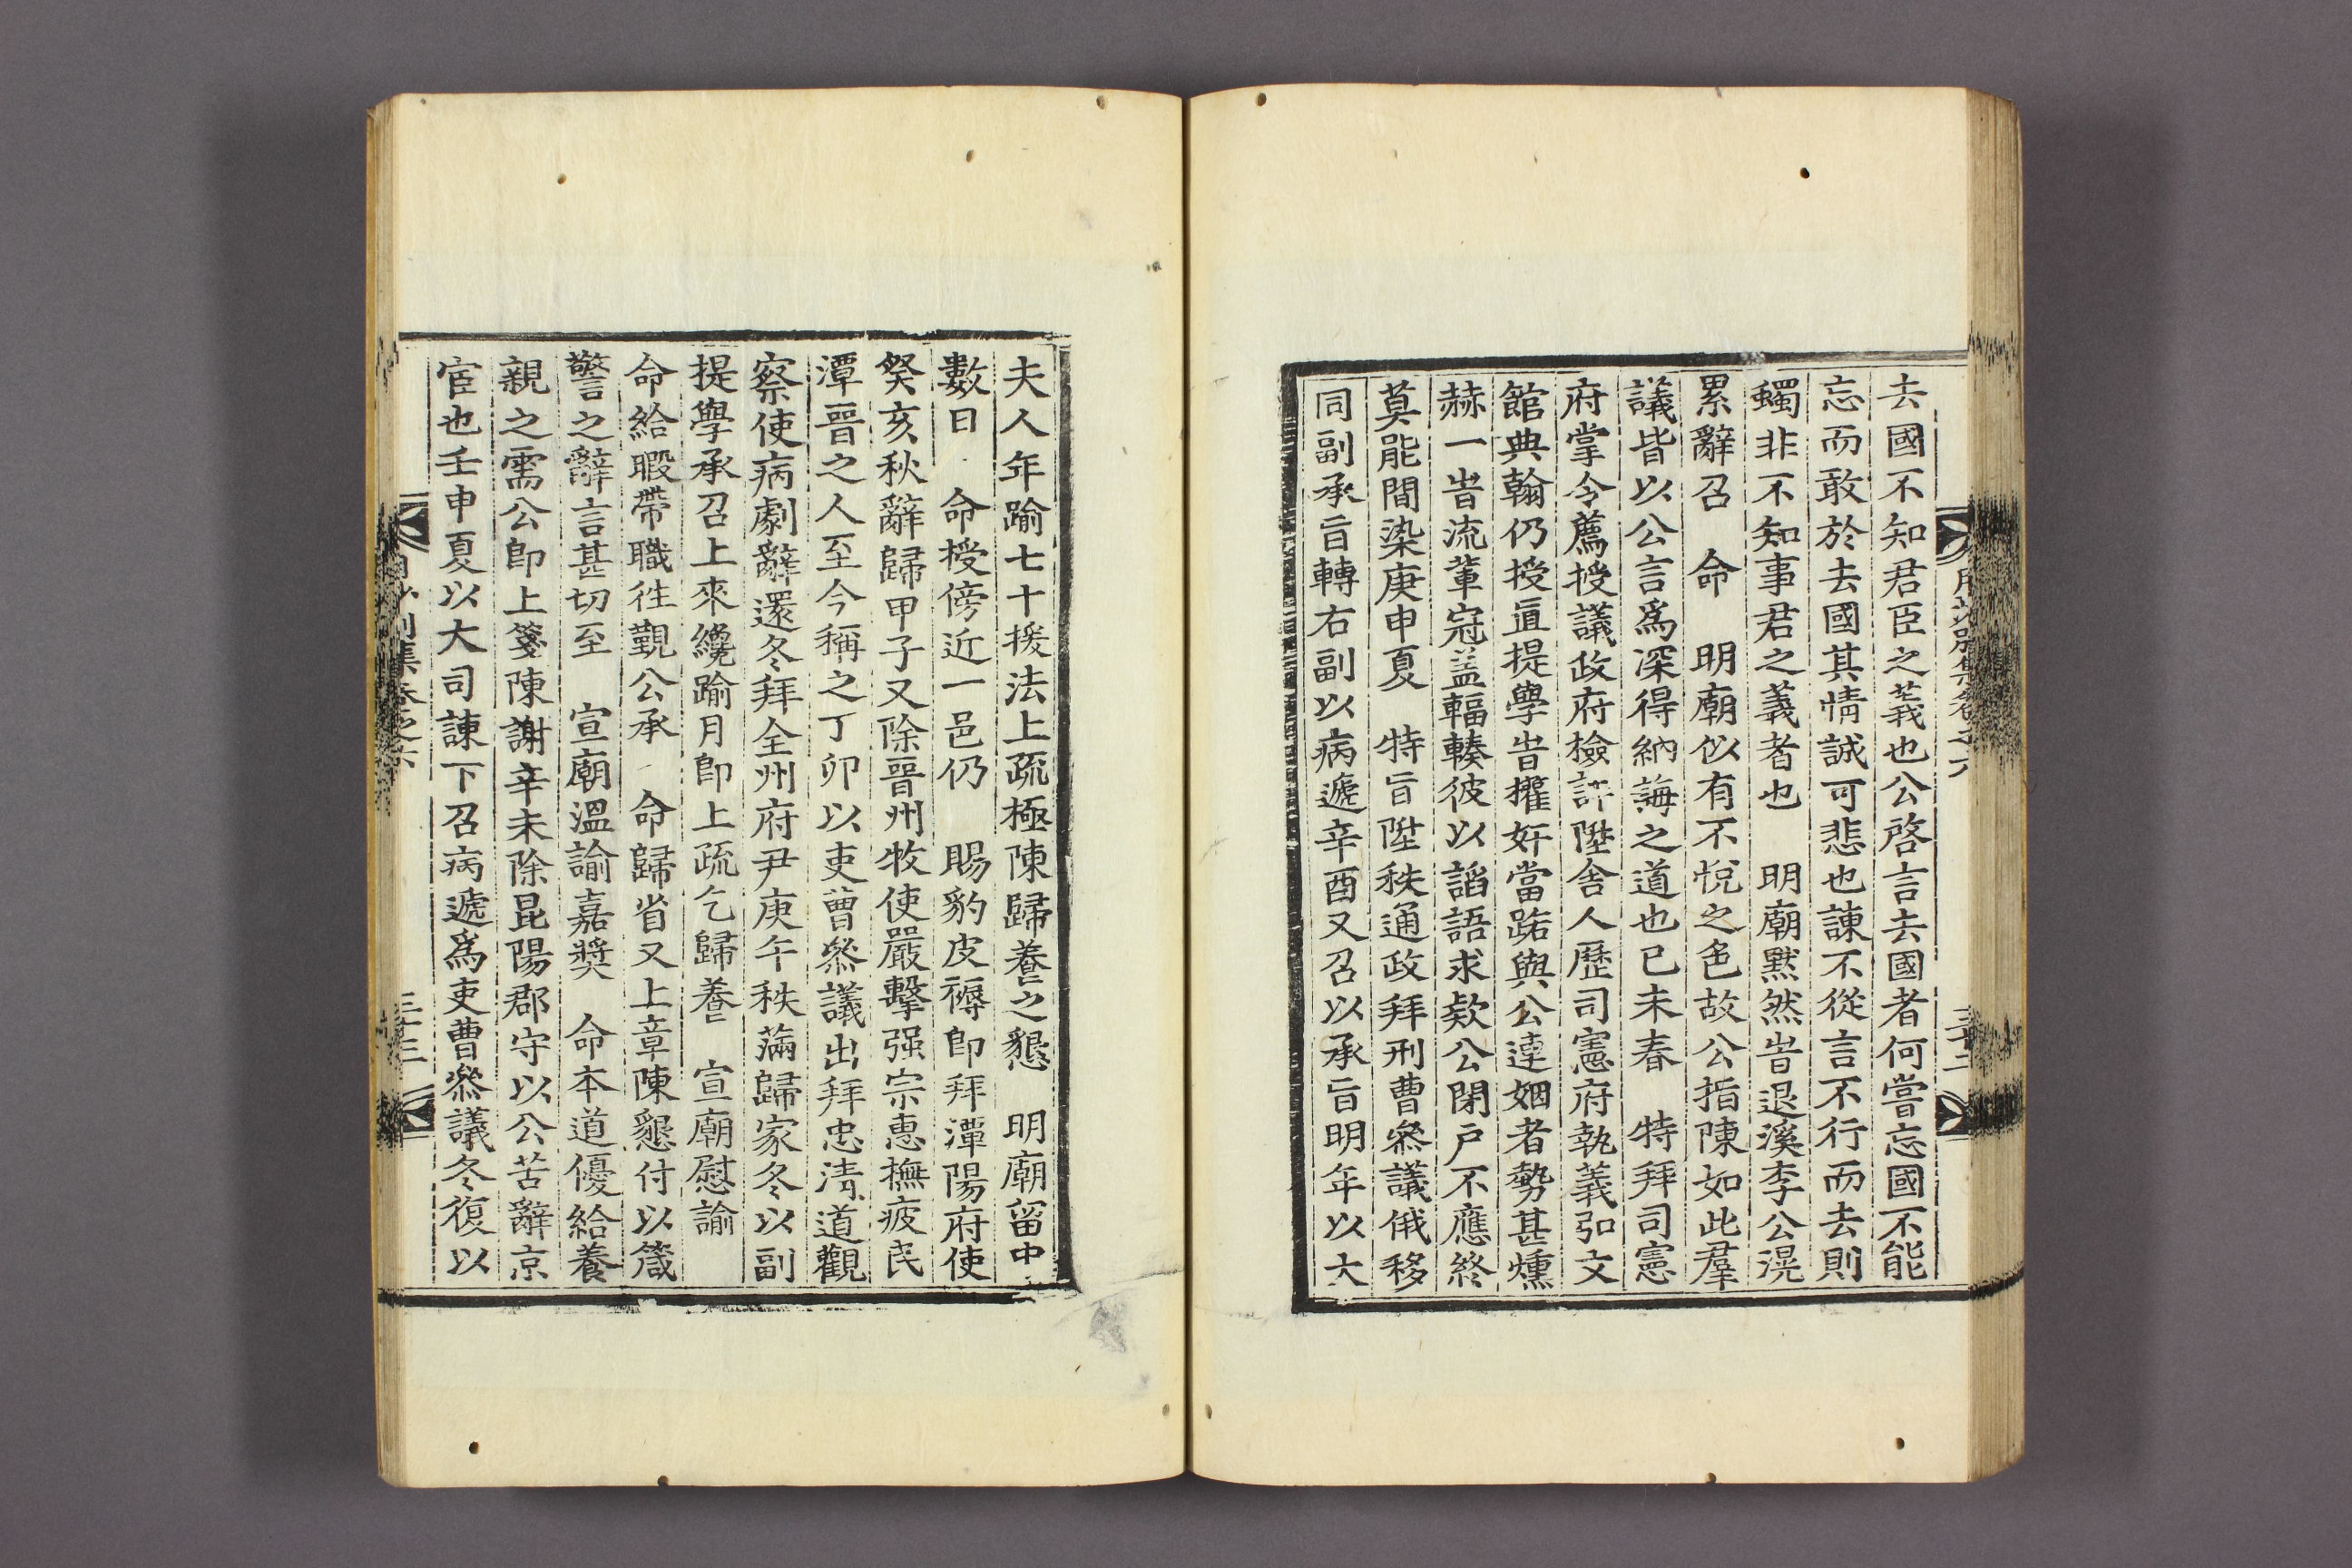 去國不知君臣之義也公啓言去國者何嘗忘國不能
忘而敢於去國其情誠可悲也諫不從言不行而去則
蠲非不知事君之義者也 明廟黙然旹退溪李公滉
累辭召 命 明廟似有不悅之色故公指陳如此羣
議皆以公言爲深得納誨之道也已未春 特拜司憲
府掌令薦授議政府檢詳陞舍人歷司憲府執義弘文
館典翰仍授直提學旹攉奸當路與公連姻者勢甚燻
赫一旹流輩冠盖輻輳彼以謟語求欵公閉戶不應終
莫能間染庚申夏 特旨陞秩通政拜刑曹叅議俄移
同副承旨轉右副以病遞辛酉又召以承旨明年以大
夫人年踰七十援法上疏極陳歸養之懇 明廟留中
數日 命授傍近一邑仍 賜豹皮褥卽拜潭陽府使
癸亥秋辭歸甲子又除晉州牧使嚴擊强宗惠撫疲民
潭晉之人至今稱之丁卯以吏曹叅議出拜忠淸道觀
察使病劇辭還冬拜全州府尹庚午秩滿歸家冬以副
提學承召上來纔踰月卽上疏乞歸養 宣廟慰諭
命給暇帶職徃覲公承 命歸省又上章陳懇付以箴
警之辭言甚切至 宣廟溫諭嘉奬 命本道優給養
親之需公卽上箋陳謝辛未除昆陽郡守以公苦辭京
宦也壬申夏以大司諫下召病遞爲吏曹叅議冬復以